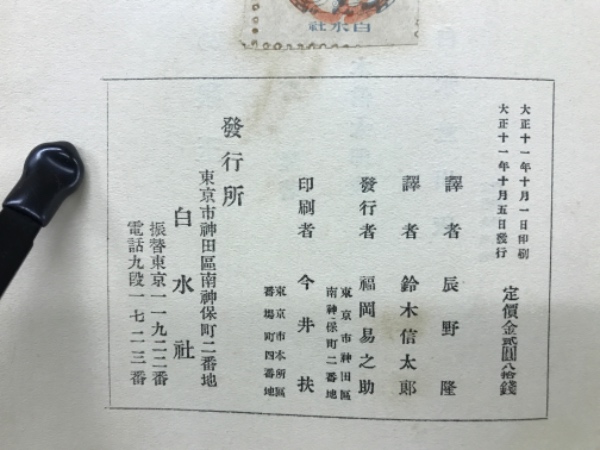 白水社
大正十一年十月一日印刷
大正十一年十月五日發行
定價金貳圓八拾錢
譯者 辰野隆
譯者 鈴木信太郎
發行者 福岡易之助
東京市神田區
南神保町二番地
印刷者 今井扶
東京市本所區
番場町四番地
發行所
東京市神田區南神保町二番地
白水社
振替東京一一九二二番
電話九段一七二三番